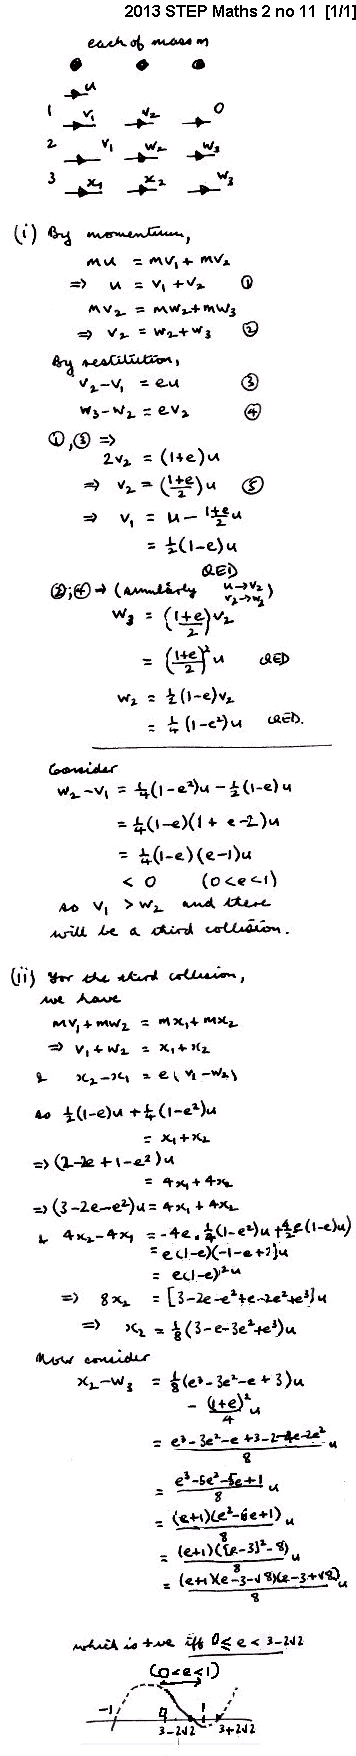 2013 STEP Maths 2 no 11 [1/1]
each of mass m
u
1 v₁ v₂ 0
2 v₁ w₂ w₃
3 x₁ x₂ w₃
(i) By momentum,
mu = mv₁ + mv₂
⇒ u = v₁ + v₂ ①
mv₂ = mw₂ + mw₃
⇒ v₂ = w₂ + w₃ ②
By restitution,
v₂ - v₁ = eu ③
w₃ - w₂ = ev₂ ④
①, ③ ⇒
2v₂ = (1+e)u
⇒ v₂ = ((1+e)/2)u ⑤
⇒ v₁ = u - (1+e)/2 u
= ½(1-e)u
QED
②, ④ → (similarly u→v₂
v₂→w₃)
w₃ = ((1+e)/2)v₂
= ((1+e)/2)² u QED
w₂ = ½(1-e)v₂
= ¼(1-e²)u QED.
Consider
w₂ - v₁ = ¼(1-e²)u - ½(1-e)u
= ¼(1-e)(1+e-2)u
= ¼(1-e)(e-1)u
< 0 (0<e<1)
so v₁ > w₂ and there
will be a third collision.
(ii) For the third collision,
we have
mv₁ + mw₂ = mx₁ + mx₂
⇒ v₁ + w₂ = x₁ + x₂
& x₂ - x₁ = e(v₁ - w₂)
so ½(1-e)u + ¼(1-e²)u
= x₁ + x₂
⇒ (2-2e+1-e²)u
= 4x₁ + 4x₂
⇒ (3-2e-e²)u = 4x₁ + 4x₂
& 4x₂ - 4x₁ = -4e.¼(1-e²)u + 4/2 e(1-e)u
= e(1-e)(-1-e+2)u
= e(1-e)²u
⇒ 8x₂ = [3-2e-e²+e-2e²+e³]u
⇒ x₂ = ⅛(3-e-3e²+e³)u
Now consider
x₂ - w₃ = ⅛(e³-3e²-e+3)u
- (1+e)²/4 u
= (e³-3e²-e+3-2-4e-2e²)/8 u
= (e³-5e²-5e+1)/8 u
= (e+1)(e²-6e+1)/8 u
= (e+1)([e-3]²-8)/8 u
= (e+1)(e-3-√8)(e-3+√8)/8 u
which is +ve iff 0 ≤ e < 3-2√2
(0<e<1)
-1 0 1
3-2√2 3+2√2